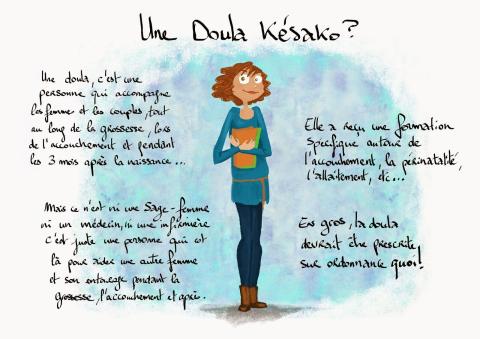 Une Doula Késako?
Une doula, c'est une
personne qui accompagne
les femme et les couples, tout
au long de la grossesse, lors
de l'accouchement et pendant
les 3 mois après la naissance...
Elle a reçu une formation
spécifique autour de
l'accouchement, la périnatalité,
l'allaitement, etc...
Mais ce n'est ni une Sage-femme
ni un médecin, ni une infirmière
c'est juste une personne qui est
là pour aider une autre femme
et son entourage pendant la
grossesse, l'accouchement et après.
En gros, la doula
devrait être prescrite
sur ordonnance quoi!